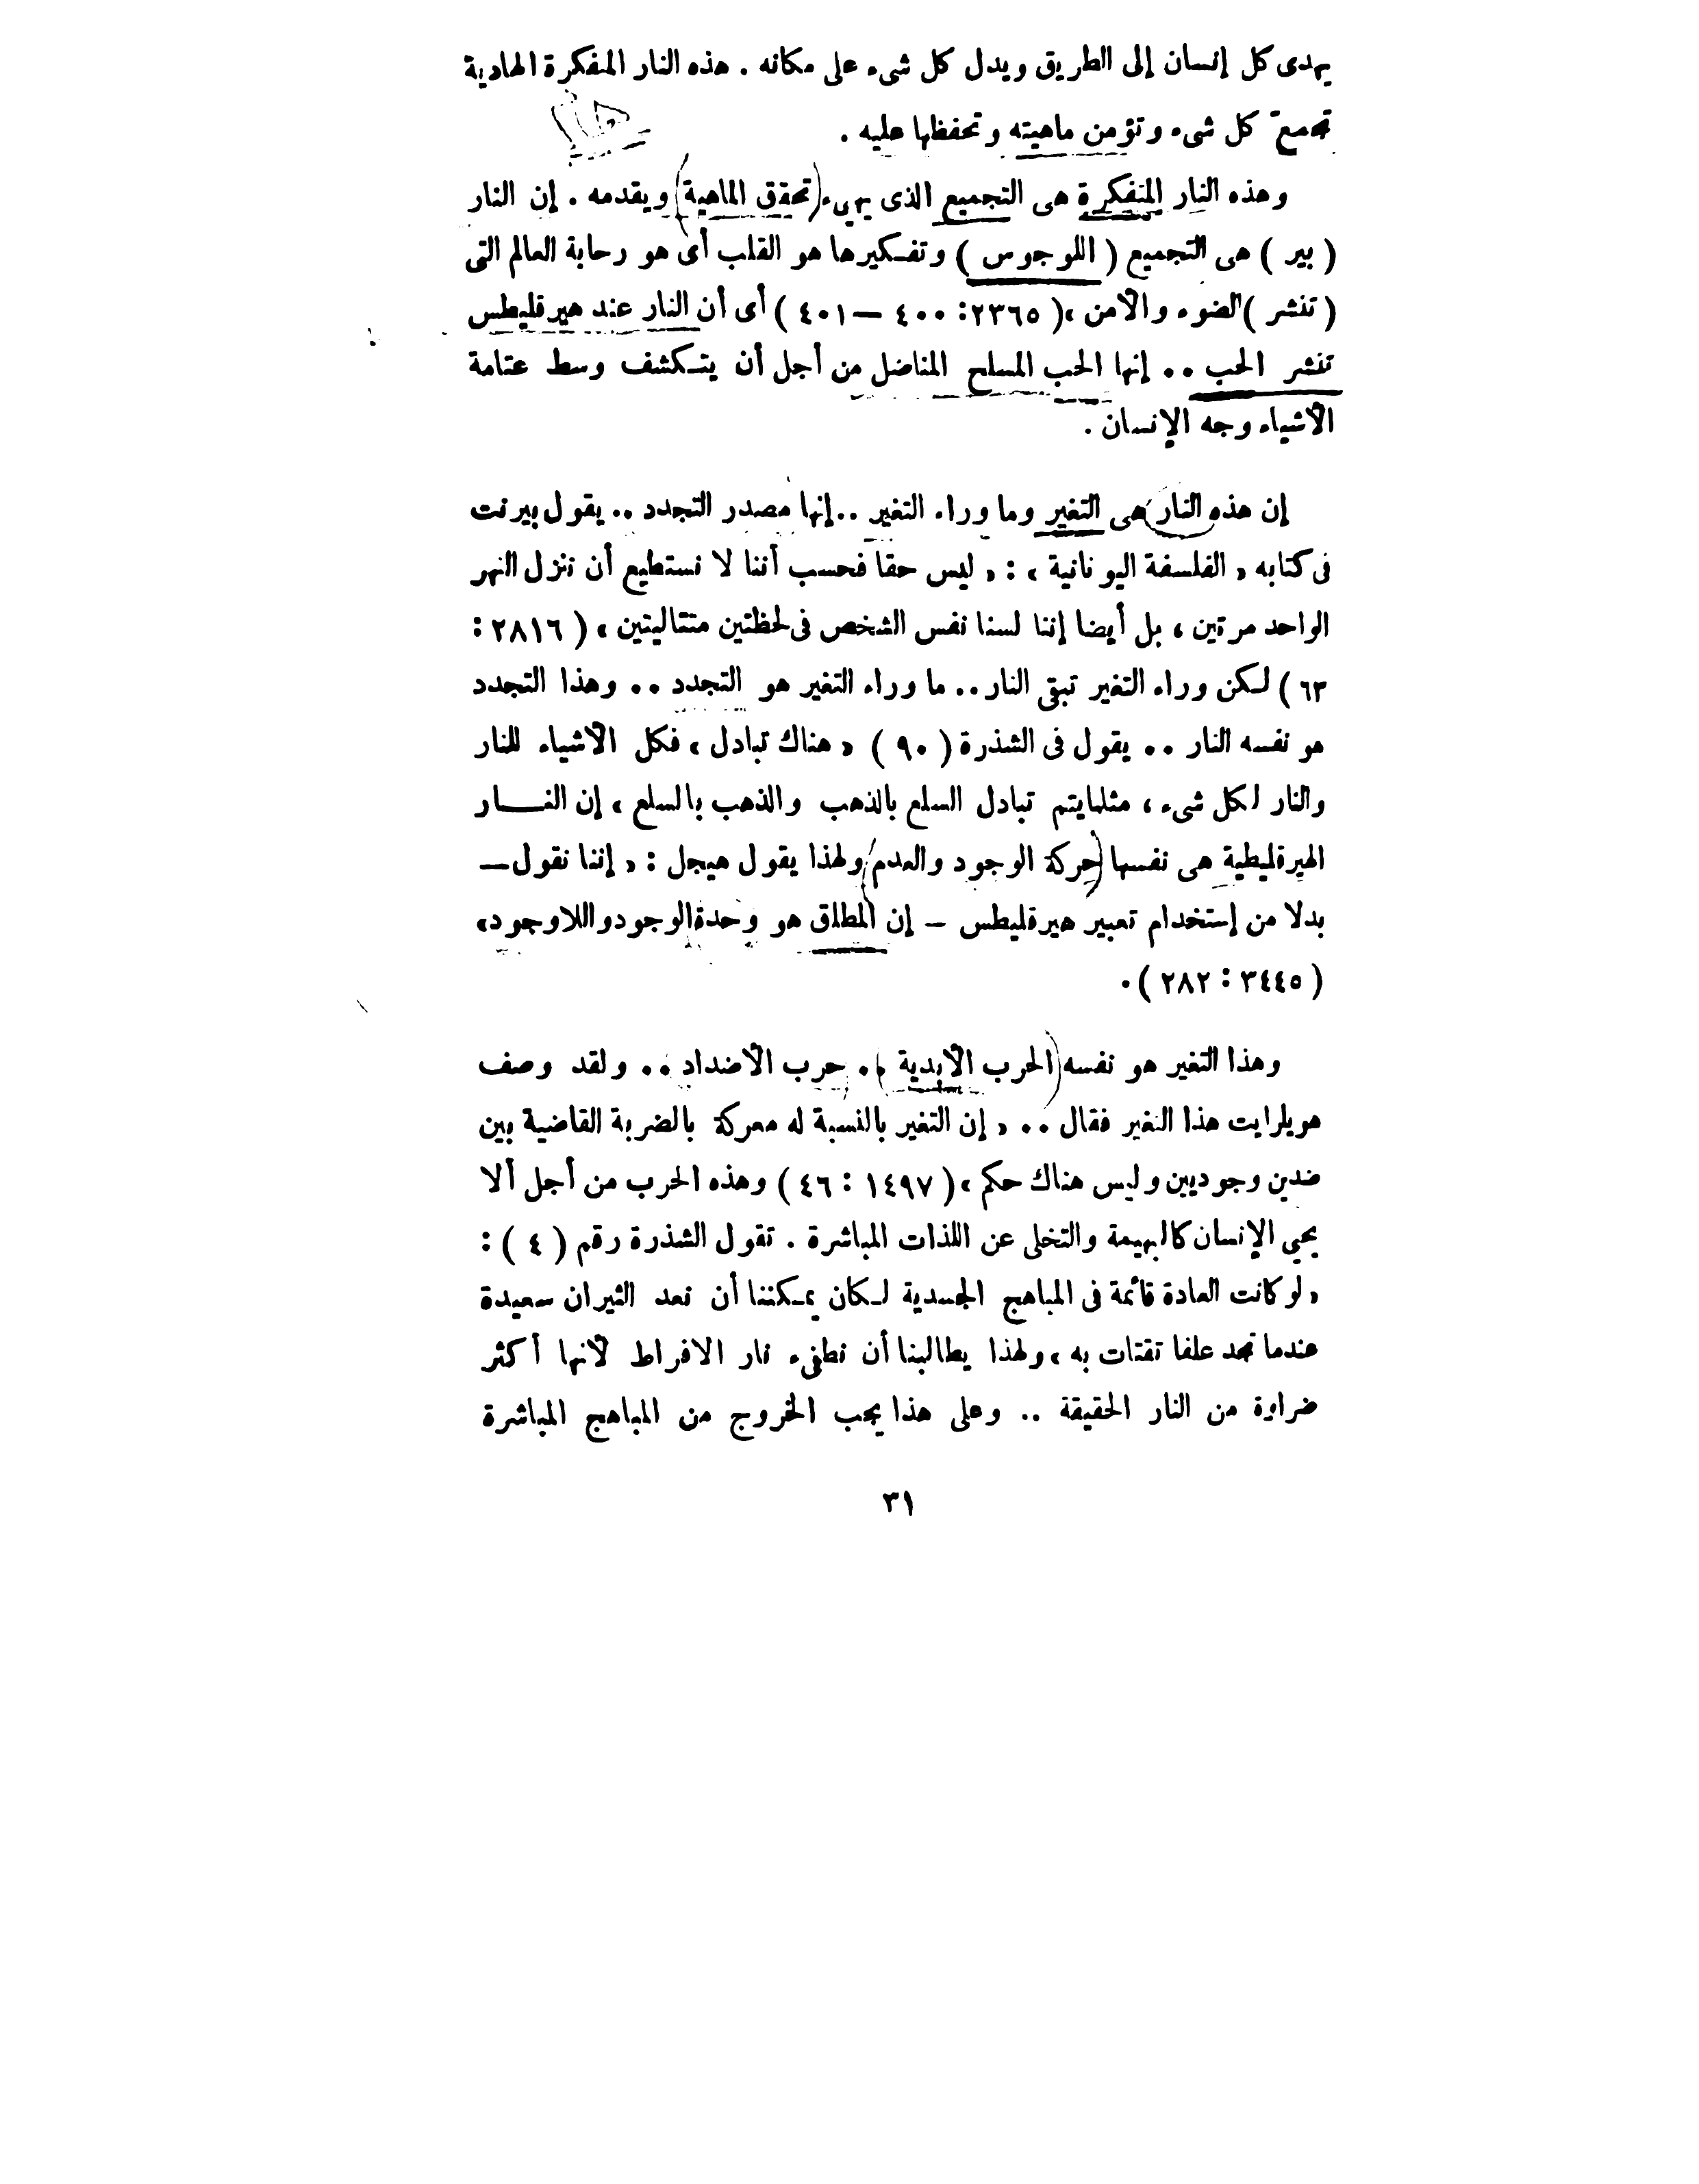 يهدى كل إنسان إلى الطريق ويدل كل شىء على مكانه . هذه النار المفكرة الهادية
تجمع كل شىء وتؤمن ماهيته وتحفظها عليه .
وهذه النار المتفكرة هى التجميع الذى يهيىء (تحقق الماهية) ويقدمه . إن النار
( بير ) هى التجميع ( اللوجوس ) وتفكيرها هو القلب أى هو رحابة العالم التى
( تنشر ) الضوء والأمن ، ( ٢٣٦٥ : ٤٠٠ – ٤٠١ ) أى أن النار عند هيرقليطس
تنشر الحب .. إنها الحب المسلح المناضل من أجل أن يتكشف وسط عتامة
الأشياء وجه الإنسان .
إن هذه النار هى التغير وما وراء التغير .. إنها مصدر التجدد .. يقول بيرنت
فى كتابه « الفلسفة اليونانية » : « ليس حقا فحسب أننا لا نستطيع أن ننزل النهر
الواحد مرتين ، بل أيضا إننا لسنا نفس الشخص فى لحظتين متتاليتين » ( ٢٨١٦ :
٦٣ ) لكن وراء التغير تبقى النار .. ما وراء التغير هو التجدد .. وهذا التجدد
هو نفسه النار .. يقول فى الشذرة ( ٩٠ ) « هناك تبادل ، فكل الأشياء للنار
والنار لكل شىء ، مثلما يتم تبادل السلع بالذهب والذهب بالسلع ، إن النــار
الهيرقليطية هى نفسها (حركة الوجود والعدم) ولهذا يقول هيجل : « إننا نقول –
بدلا من إستخدام تعبير هيرقليطس – إن المطلق هو وحدة الوجود واللاوجود »
( ٣٤٤٥ : ٢٨٢ ) .
وهذا التغير هو نفسه (الحرب الأبدية ) .. حرب الأضداد .. ولقد وصف
هويلرايت هذا التغير فقال .. « إن التغير بالنسبة له معركة بالضربة القاضية بين
ضدين وجوديين وليس هناك حكم » ( ١٤٩٧ : ٤٦ ) وهذه الحرب من أجل ألا
يحيى الإنسان كالبهيمة والتخلى عن اللذات المباشرة . تقول الشذرة رقم ( ٤ ) :
« لو كانت العادة قائمة فى المباهج الجسدية لكان يمكننا أن نعد الثيران سعيدة
عندما تجد علفا تقتات به » ولهذا يطالبنا أن نطفىء نار الافراط لأنها أكثر
ضراوة من النار الحقيقة .. وعلى هذا يجب الخروج من المباهج المباشرة
٣١